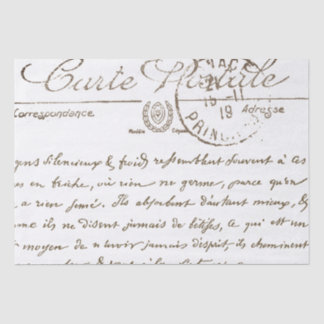 Carte Postale
Correspondance
19
PRINC
Adresse
gens silencieux & froids ressemblent souvent à ces
en friche, où rien ne germe, parce qu'on
a rien semé. Ils absorbent d'autant mieux, &
ils ne disent jamais de bêtises, ce qui est un
moyen de n'avoir jamais d'esprit, ils cheminent